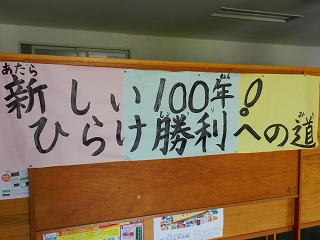 あたら ねん
新しい100年！
しょうり みち
ひらけ勝利への道